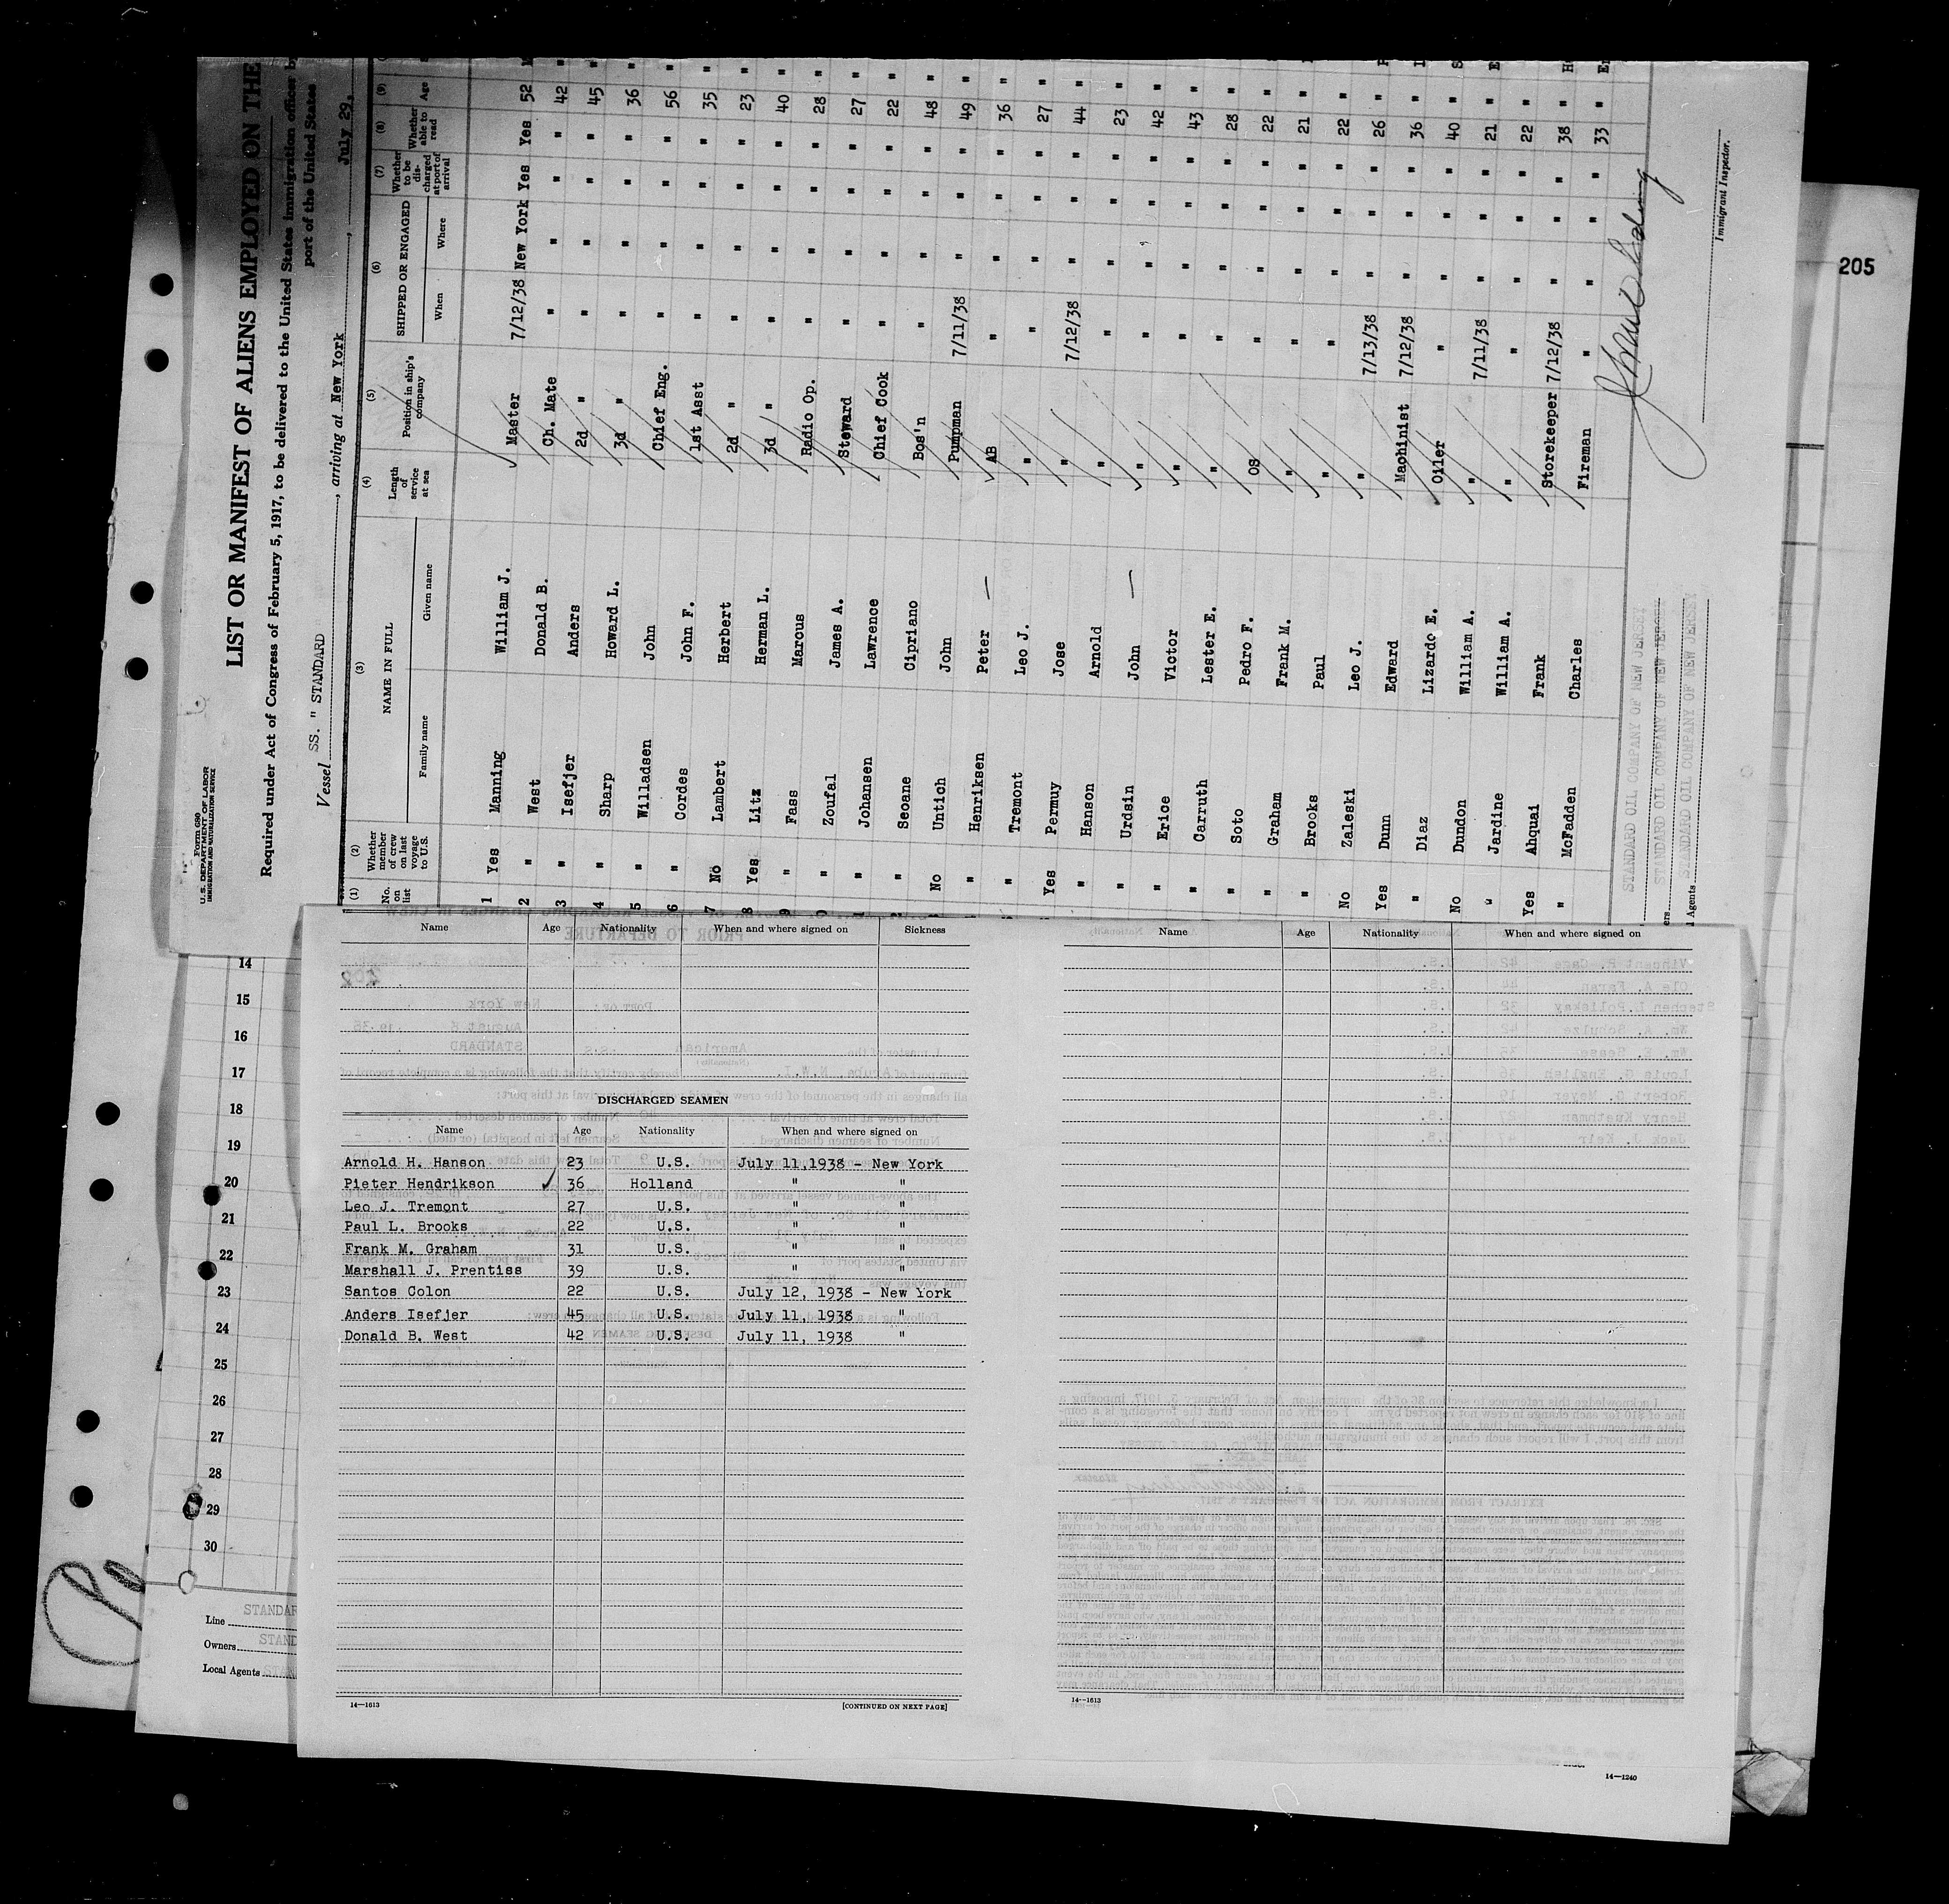 Form 680
U.S. DEPARTMENT OF LABOR
IMMIGRATION AND NATURALIZATION SERVICE
LIST OR MANIFEST OF ALIENS EMPLOYED ON THE
Required under Act of Congress of February 5, 1917, to be delivered to the United States immigration officer by
port of the United States
Vessel SS. " STANDARD ", arriving at New York, July 29,
(1) (2) (3) (4) (5) (6) (7) (8) (9)
No. on list Whether member of crew on last voyage to U.S. NAME IN FULL Length of service at sea Position in ship's company SHIPPED OR ENGAGED Whether to be discharged at port of arrival Whether able to read Age
Family name Given name When Where
1 Yes Manning William J. Master 7/12/38 New York Yes Yes 52
2 " West Donald B. Ch. Mate " " " " 42 "
3 " Isefjer Anders 2d " " " " " 45 "
4 " Sharp Howard L. 3d " " " " " 36 "
5 " Willadsen John Chief Eng. " " " " 56 "
6 " Cordes John F. 1st Asst " " " " 35 "
7 No Lambert Herbert 2d " " " " " 23 "
8 Yes Litz Herman L. 3d " " " " " 40 "
9 " Fass Marcus Radio Op. " " " " 28 "
" Zoufal James A. Steward " " " " 27 "
" Johansen Lawrence Chief Cook " " " " 22 "
" Seoane Cipriano Bos'n " " " " 48 "
No Unich John Pumpman 7/11/38 " " " 49 "
" Henriksen Peter — AB " " " " 36 "
" Tremont Leo J. " " " " " 27 "
Yes Permuy Jose " 7/12/38 " " " 44 "
" Hanson Arnold " " " " " 23 "
" Urdsin John — " " " " " 42 "
" Erice Victor " " " " " 43 "
" Carruth Lester E. " " " " " 28 "
" Soto Pedro F. OS " " " " 22 "
" Graham Frank M. " " " " " 21 "
" Brooks Paul " " " " " 22 "
No Zaleski Leo J. " 7/13/38 " " " 26 "
Yes Dunn Edward Machinist 7/12/38 " " " 36 "
" Diaz Lizardo E. Oiler " " " " 40 "
No Dundon William A. " 7/11/38 " " " 21 "
" Jardine William A. " " " " " 22 "
Yes Ahquai Frank Storekeeper 7/12/38 " " " 38 "
" McFadden Charles Fireman " " " " 33 "
STANDARD OIL COMPANY OF NEW JERSEY
STANDARD OIL COMPANY OF NEW JERSEY
Agents STANDARD OIL COMPANY OF NEW JERSEY
Immigrant Inspector.
205
14
15
16
17
18
19
20
21
22
23
24
25
26
27
28
29
30
Line STANDAR
Owners STAND
Local Agents
Name Age Nationality When and where signed on Sickness
DISCHARGED SEAMEN
Name Age Nationality When and where signed on
Arnold H. Hanson 23 U.S. July 11,1938 - New York
Pieter Hendrikson ✓ 36 Holland " "
Leo J. Tremont 27 U.S. " "
Paul L. Brooks 22 U.S. " "
Frank M. Graham 31 U.S. " "
Marshall J. Prentiss 39 U.S. " "
Santos Colon 22 U.S. July 12, 1938 - New York
Anders Isefjer 45 U.S. July 11, 1938 "
Donald B. West 42 U.S. July 11, 1938 "
14—1613 [CONTINUED ON NEXT PAGE]
Name Age Nationality When and where signed on
14—1613
14—1240